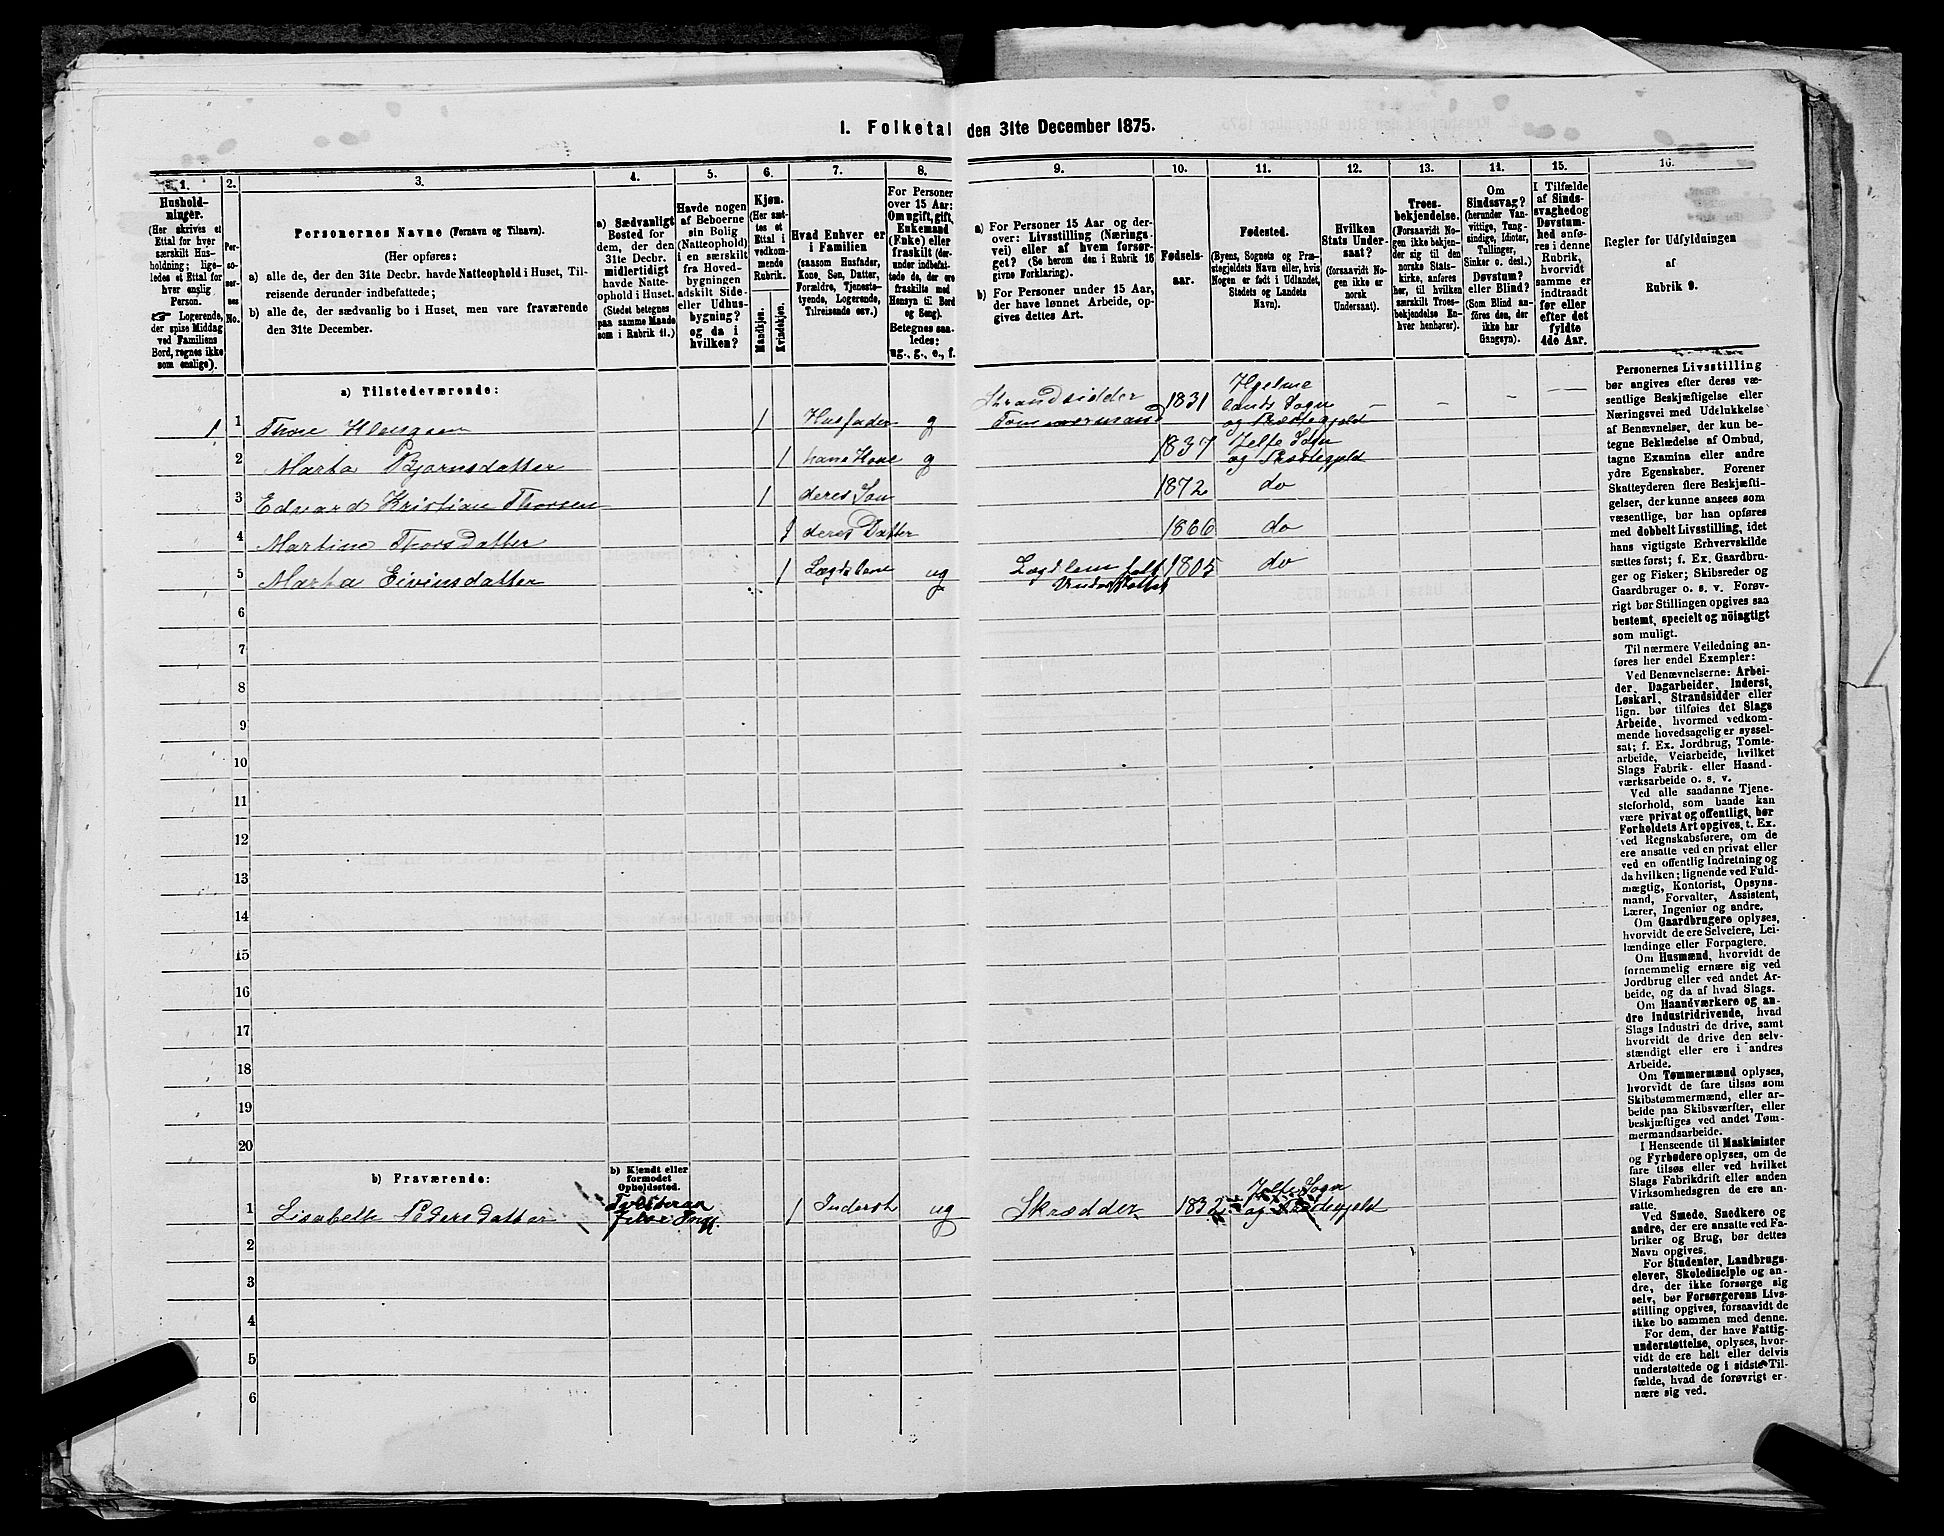 I. Folketal den 31te December 1875.
1.
Hushold-
ninger.
(Her skrives et
Ettal for hver
særskilt Hus-
holdning; lige-
ledes et Ettal for
hver enslig
Person.
☞ Logerende,
der spise Middag
ved Familiens
Bord, regnes ikke
som enslige).
2.
Per-
so-
ner-
nes
No.
3.
Personernes Navne (Fornavn og Tilnavn).
(Her opføres:
a) alle de, der den 31te Decbr. havde Natteophold i Huset, Til-
reisende derunder indbefattede;
b) alle de, der sædvanlig bo i Huset, men vare fraværende
den 31te December.
4.
a) Sædvanligt
Bosted for
dem, der den
31te Decbr.
midlertidigt
havde Natte-
ophold i Huset.
(Stedet betegnes
paa samme Maade
som i Rubrik 11.)
5.
Havde nogen
af Beboerne
sin Bolig
(Natteophold)
i en særskilt
fra Hoved-
bygningen
adskilt Side-
eller Udhus-
bygning?
og da i
hvilken?
6.
Kjøn.
(Her sæt-
tes et
Ettal i
vedkom-
mende
Rubrik.
Mandkjøn.
Kvindekjøn.
7.
Hvad Enhver er
i Familien
(saasom Husfader,
Kone, Søn, Datter,
Forældre, Tjeneste-
tyende, Logerende,
Tilreisende osv.)
8.
For Personer
over 15 Aar:
Om ugift, gift,
Enkemand
(Enke) eller
fraskilt (der-
under indbefat-
tede de, der ere
fraskilte med
Hensyn til Bord
og Seng).
Betegnes saa-
ledes:
ug., g., e., f.
9.
a) For Personer 15 Aar og der-
over: Livsstilling (Nærings-
vei) eller af hvem forsør-
get? (Se herom den i Rubrik 16
givne Forklaring).
b) For Personer under 15 Aar,
der have lønnet Arbeide, op-
gives dettes Art.
10.
Fødsels-
aar.
11.
Fødested.
(Byens, Sognets og Præ-
stegjeldets Navn eller, hvis
Nogen er født i Udlandet,
Stedets og Landets
Navn).
12.
Hvilken
Stats Under-
saat?
(forsaavidt No-
gen ikke er
norsk
Undersaat).
13.
Troes-
bekjendelse.
(Forsaavidt No-
gen ikke bekjen-
der sig til den
norske Stats-
kirke, anføres
her, til hvilken
særskilt Troes-
bekjendelse En-
hver henhører).
14.
Om
Sindssvag?
(herunder Van-
vittige, Tung-
sindige, Idioter,
Tullinger,
Sinker o. desl.)
Døvstum?
eller Blind?
(Som Blind an-
føres den, der
ikke har
Gangsyn).
15.
I Tilfælde
af Sinds-
svaghed og
Døvstum-
hed anfø-
res i denne
Rubrik,
hvorvidt
samme er
indtraadt
før eller
efter det
fyldte
4de Aar.
16.
Regler for Udfyldningen
af
Rubrik 9.
a) Tilstedeværende:
1 1 Thore 1 Husfader g Strandsidder Tømmermand 1831 Hjelme lands Sogn og Præstegjeld – – – –
2 Marta Bjørnsdatter 1 hans Kone g 1837 Jelse Sogn og Præstegjeld
3 Edvard Kristian Thorsen 1 deres Søn 1872 do
4 Martine Thorsdatter 1 deres Datter 1866 do
5 Marta Eivinsdatter 1 Lægdslem ug Lægdlem Understøttet 1805 do
6
7
8
9
10
11
12
13
14
15
16
17
18
19
20
b) Fraværende:
b) Kjendt eller
formodet
Opholdssted.
1 Lisabeth Pedersdatter 1 Inderst ug Skrædder 1832 Jelse Sogn og Præstegjeld
2
3
4
5
6
Personernes Livsstilling
bør angives efter deres væ-
sentlige Beskjæftigelse eller
Næringsvei med Udelukkelse
af Benævnelser, der kun be-
tegne Beklædelse af Ombud,
tagne Examina eller andre
ydre Egenskaber. Forener
Skatteyderen flere Beskjæfti-
gelser, der kunne ansees som
væsentlige, bør han opføres
med dobbelt Livsstilling, idet
hans vigtigste Erhvervskilde
sættes først; f. Ex. Gaardbru-
ger og Fisker; Skibsreder og
Gaardbruger o. s. v. Forøv-
rigt bør Stillingen opgives saa
bestemt, specielt og nöiagtigt
som muligt.
Til nærmere Veiledning an-
føres her endel Exempler:
Ved Benævnelserne: Arbei-
der, Dagarbeider, Inderst,
Løskarl, Strandsidder eller
lign. bør tilføies det Slags
Arbeide, hvormed vedkom-
mende hovedsagelig er syssel-
sat; f. Ex. Jordbrug, Tomte-
arbeide, Veiarbeide, hvilket
Slags Fabrik- eller Haand-
værksarbeide o. s. v.
Ved alle saadanne Tjene-
steforhold, som baade kan
være privat og offentligt, bør
Forholdets Art opgives, t. Ex.
ved Regnskabsførere, om de
ere ansatte ved en privat eller
ved en offentlig Indretning og
da hvilken; lignende ved Fuld-
mægtig, Kontorist, Opsyns-
mand, Forvalter, Assistent,
Lærer, Ingeniør og andre.
Om Gaardbrugere oplyses,
hvorvidt de ere Selveiere, Lei-
lændinge eller Forpagtere.
Om Husmænd, hvorvidt de
fornemmelig ernære sig ved
Jordbrug eller ved andet Ar-
beide, og da af hvad Slags.
Om Haandværkere og an-
dre Industridrivende, hvad
Slags Industri de drive, samt
hvorvidt de drive den selv-
stændigt eller ere i andres
Arbeide.
Om Tømmermænd oplyses,
hvorvidt de fare tilsøs som
Skibstømmermænd, eller ar-
beide paa Skibsværfter, eller
beskjæftiges ved andet Tøm-
mermandsarbeide.
I Henseende til Maskinister
og Fyrbødere oplyses, om de
fare tilsøs eller ved hvilket
Slags Fabrikdrift eller anden
Virksomhedsgren de ere an-
satte.
Ved Smede, Snedkere og
andre, der ere ansatte ved Fa-
briker og Brug, bør dettes
Navn opgives.
For Studenter, Landbrugs-
elever, Skoledisciple og an-
dre, der ikke forsørge sig
selv, bør Forsørgerens Livs-
stilling opgives, forsaavidt de
ikke bo sammen med denne.
For dem, der have Fattig-
understøttelse, oplyses, hvor-
vidt de ere helt eller delvis
understøttede og i sidste Til-
fælde, hvad de forøvrigt er-
nære sig ved.